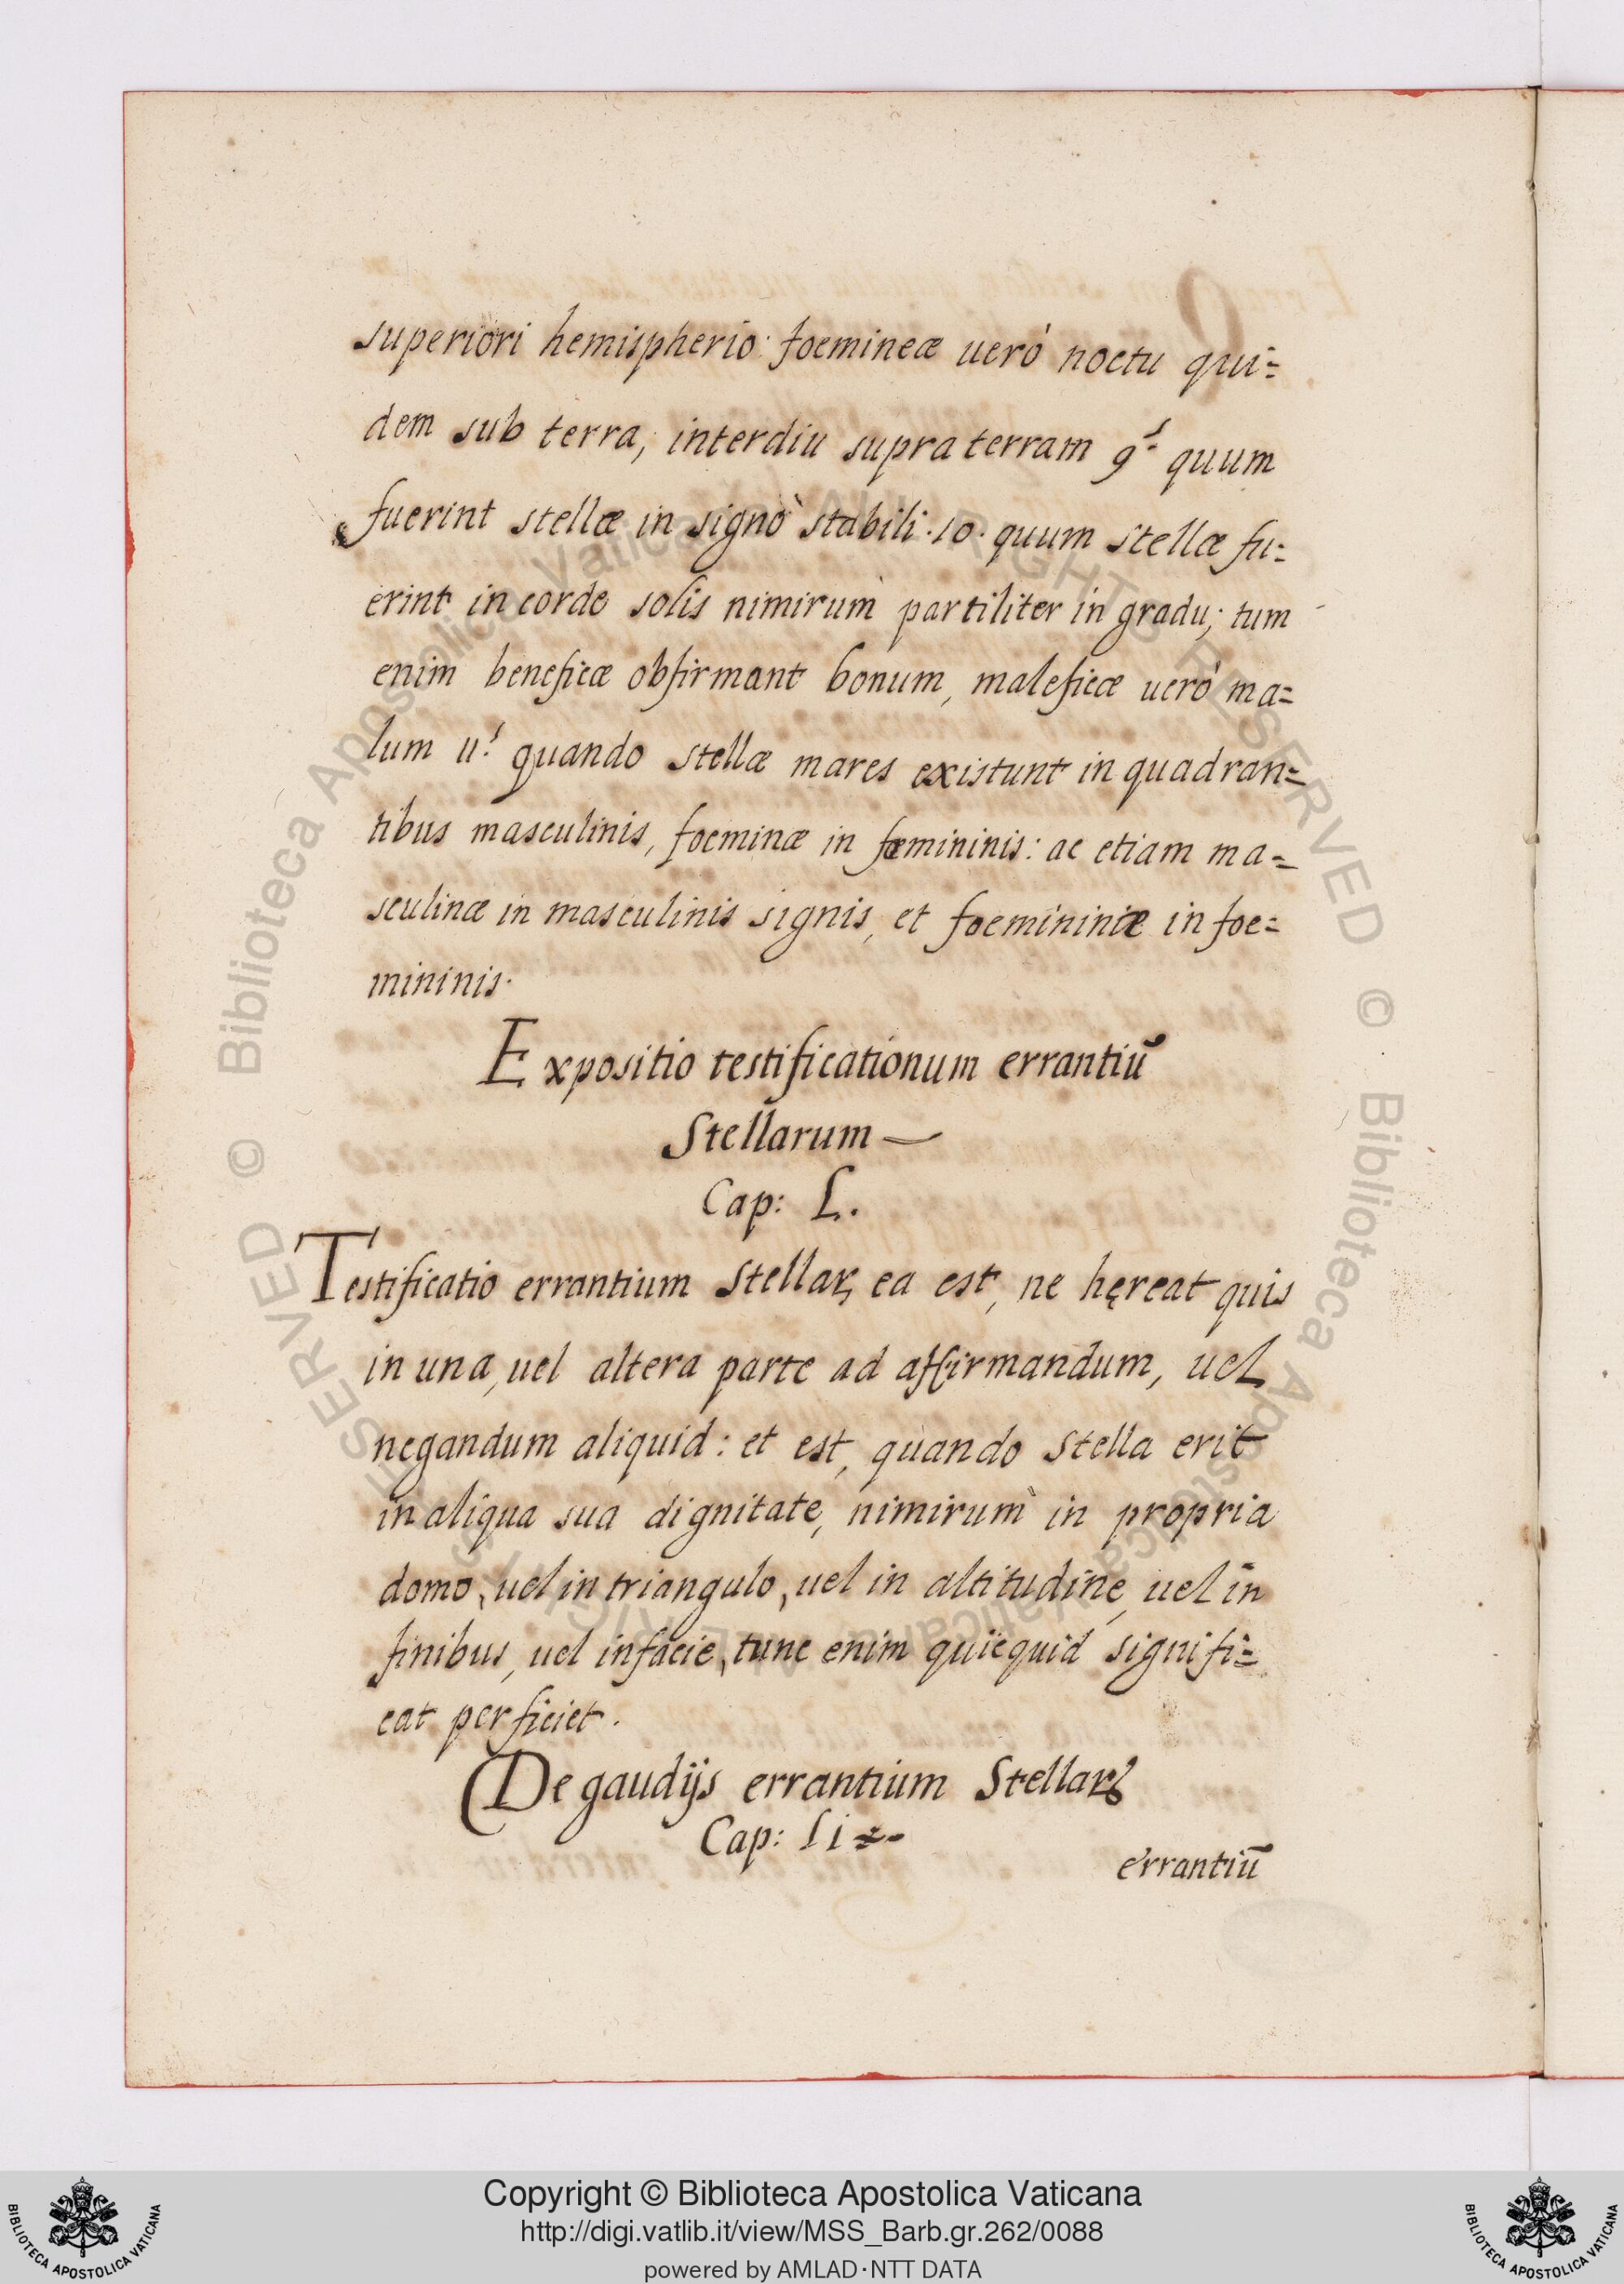 superiori hemispherio: foemineæ uerò noctu qui=
dem sub terra, interdiu supra terram 9.º quum
fuerint stellæ in signo stabili. 10. quum stellæ fu=
erint in corde solis nimirum partiliter in gradu; tum
enim beneficæ obfirmant bonum, maleficæ uerò ma=
lum 11.º quando stellæ mares existunt in quadran=
tibus masculinis, foeminæ in fæmininis: ac etiam ma=
sculinæ in masculinis signis, et foemininiæ in foe=
mininis.
Expositio testificationum errantiū
Stellarum—
Cap: L.
Testificatio errantium Stellaꝝ ea est, ne hęreat quis
in una, uel altera parte ad affirmandum, uel
negandum aliquid: et est, quando stella erit
in aliqua sua dignitate, nimirum in propria
domo, uel in triangulo, uel in altitudine, uel in
finibus, uel in facie, tunc enim quicquid signifi=
cat perficiet.
De gaudijs errantium Stellaꝝ
Cap: Li
errantiū
© Biblioteca Apostolica Vaticana ALL RIGHTS RESERVED © Biblioteca Apostolica Vaticana ALL RIGHTS RESERVED
Copyright © Biblioteca Apostolica Vaticana
http://digi.vatlib.it/view/MSS_Barb.gr.262/0088
powered by AMLAD·NTT DATA
BIBLIOTECA APOSTOLICA VATICANA
BIBLIOTECA APOSTOLICA VATICANA